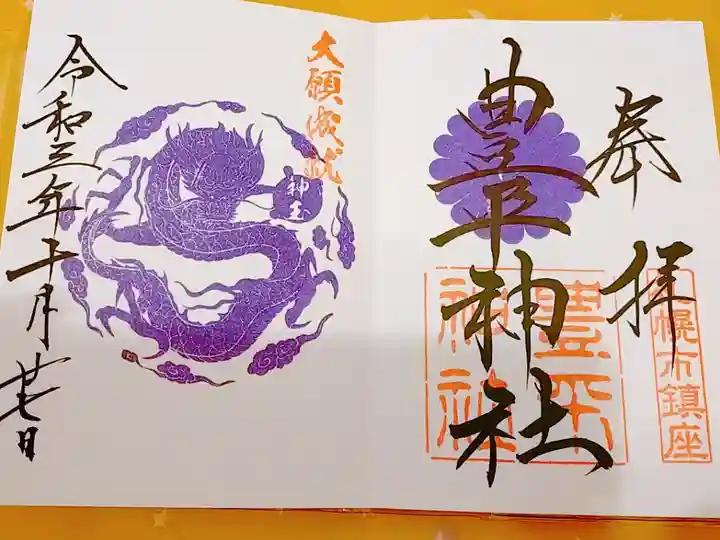 奉拝
豊平神社
豊平神社
札幌市鎮座
大願成就
神玉
令和三年十月廿七日